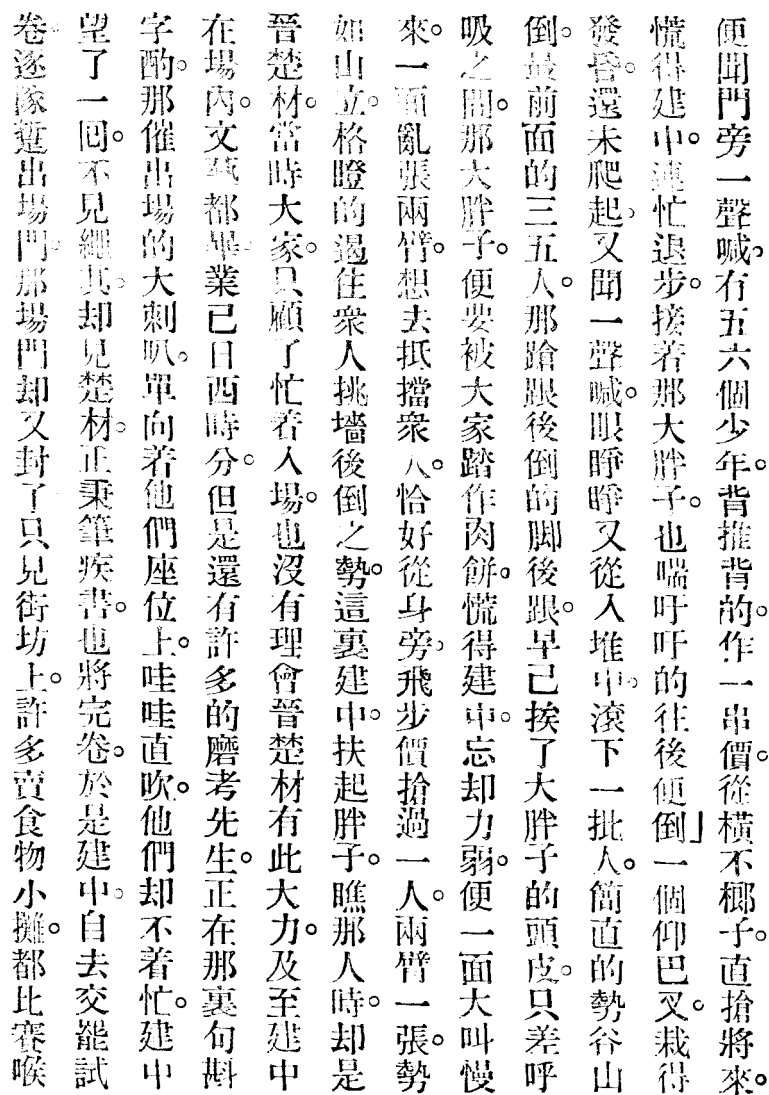 便聞門旁一聲喊。有五六個少年。背推背的。作一串價。從橫不榔子。直搶將來。
慌得建中。連忙退步。接着那大胖子。也喘吁吁的往後便倒」一個仰巴叉。栽得
發昏。還未爬起。又聞一聲喊。眼睜睜又從人堆中。滾下一批人。簡直的勢谷山
倒。最前面的三五人。那蹌踉後倒的脚後跟。早已挨了大胖子的頭皮。只差呼
吸之間。那大胖子。便要被大家踏作肉餅。慌得建中。忘却力弱。便一面大叫慢
來。一面亂張兩臂。想去抵擋衆人。恰好從身旁。飛步價搶過一人。兩臂一張。勢
如山立。格瞪的遏住衆人挑墻後倒之勢。這裏建中。扶起胖子。瞧那人時。却是
晉楚材。當時大家。只顧了忙着入場。也沒有理會晉楚材有此大力。及至建中
在場內。文藝都畢。業已日西時分。但是還有許多的磨考先生。正在那裏句斟
字酌。那催出場的大刺叭。單向着他們座位上。哇哇直吹。他們却不着忙。建中
望了一回。不見繩其。却見楚材。正秉筆疾書。也將完卷。於是建中。自去交罷試
卷。逐隊踅出場門。那場門却又封了。只見街坊上。許多賣食物小攤。都比賽喉